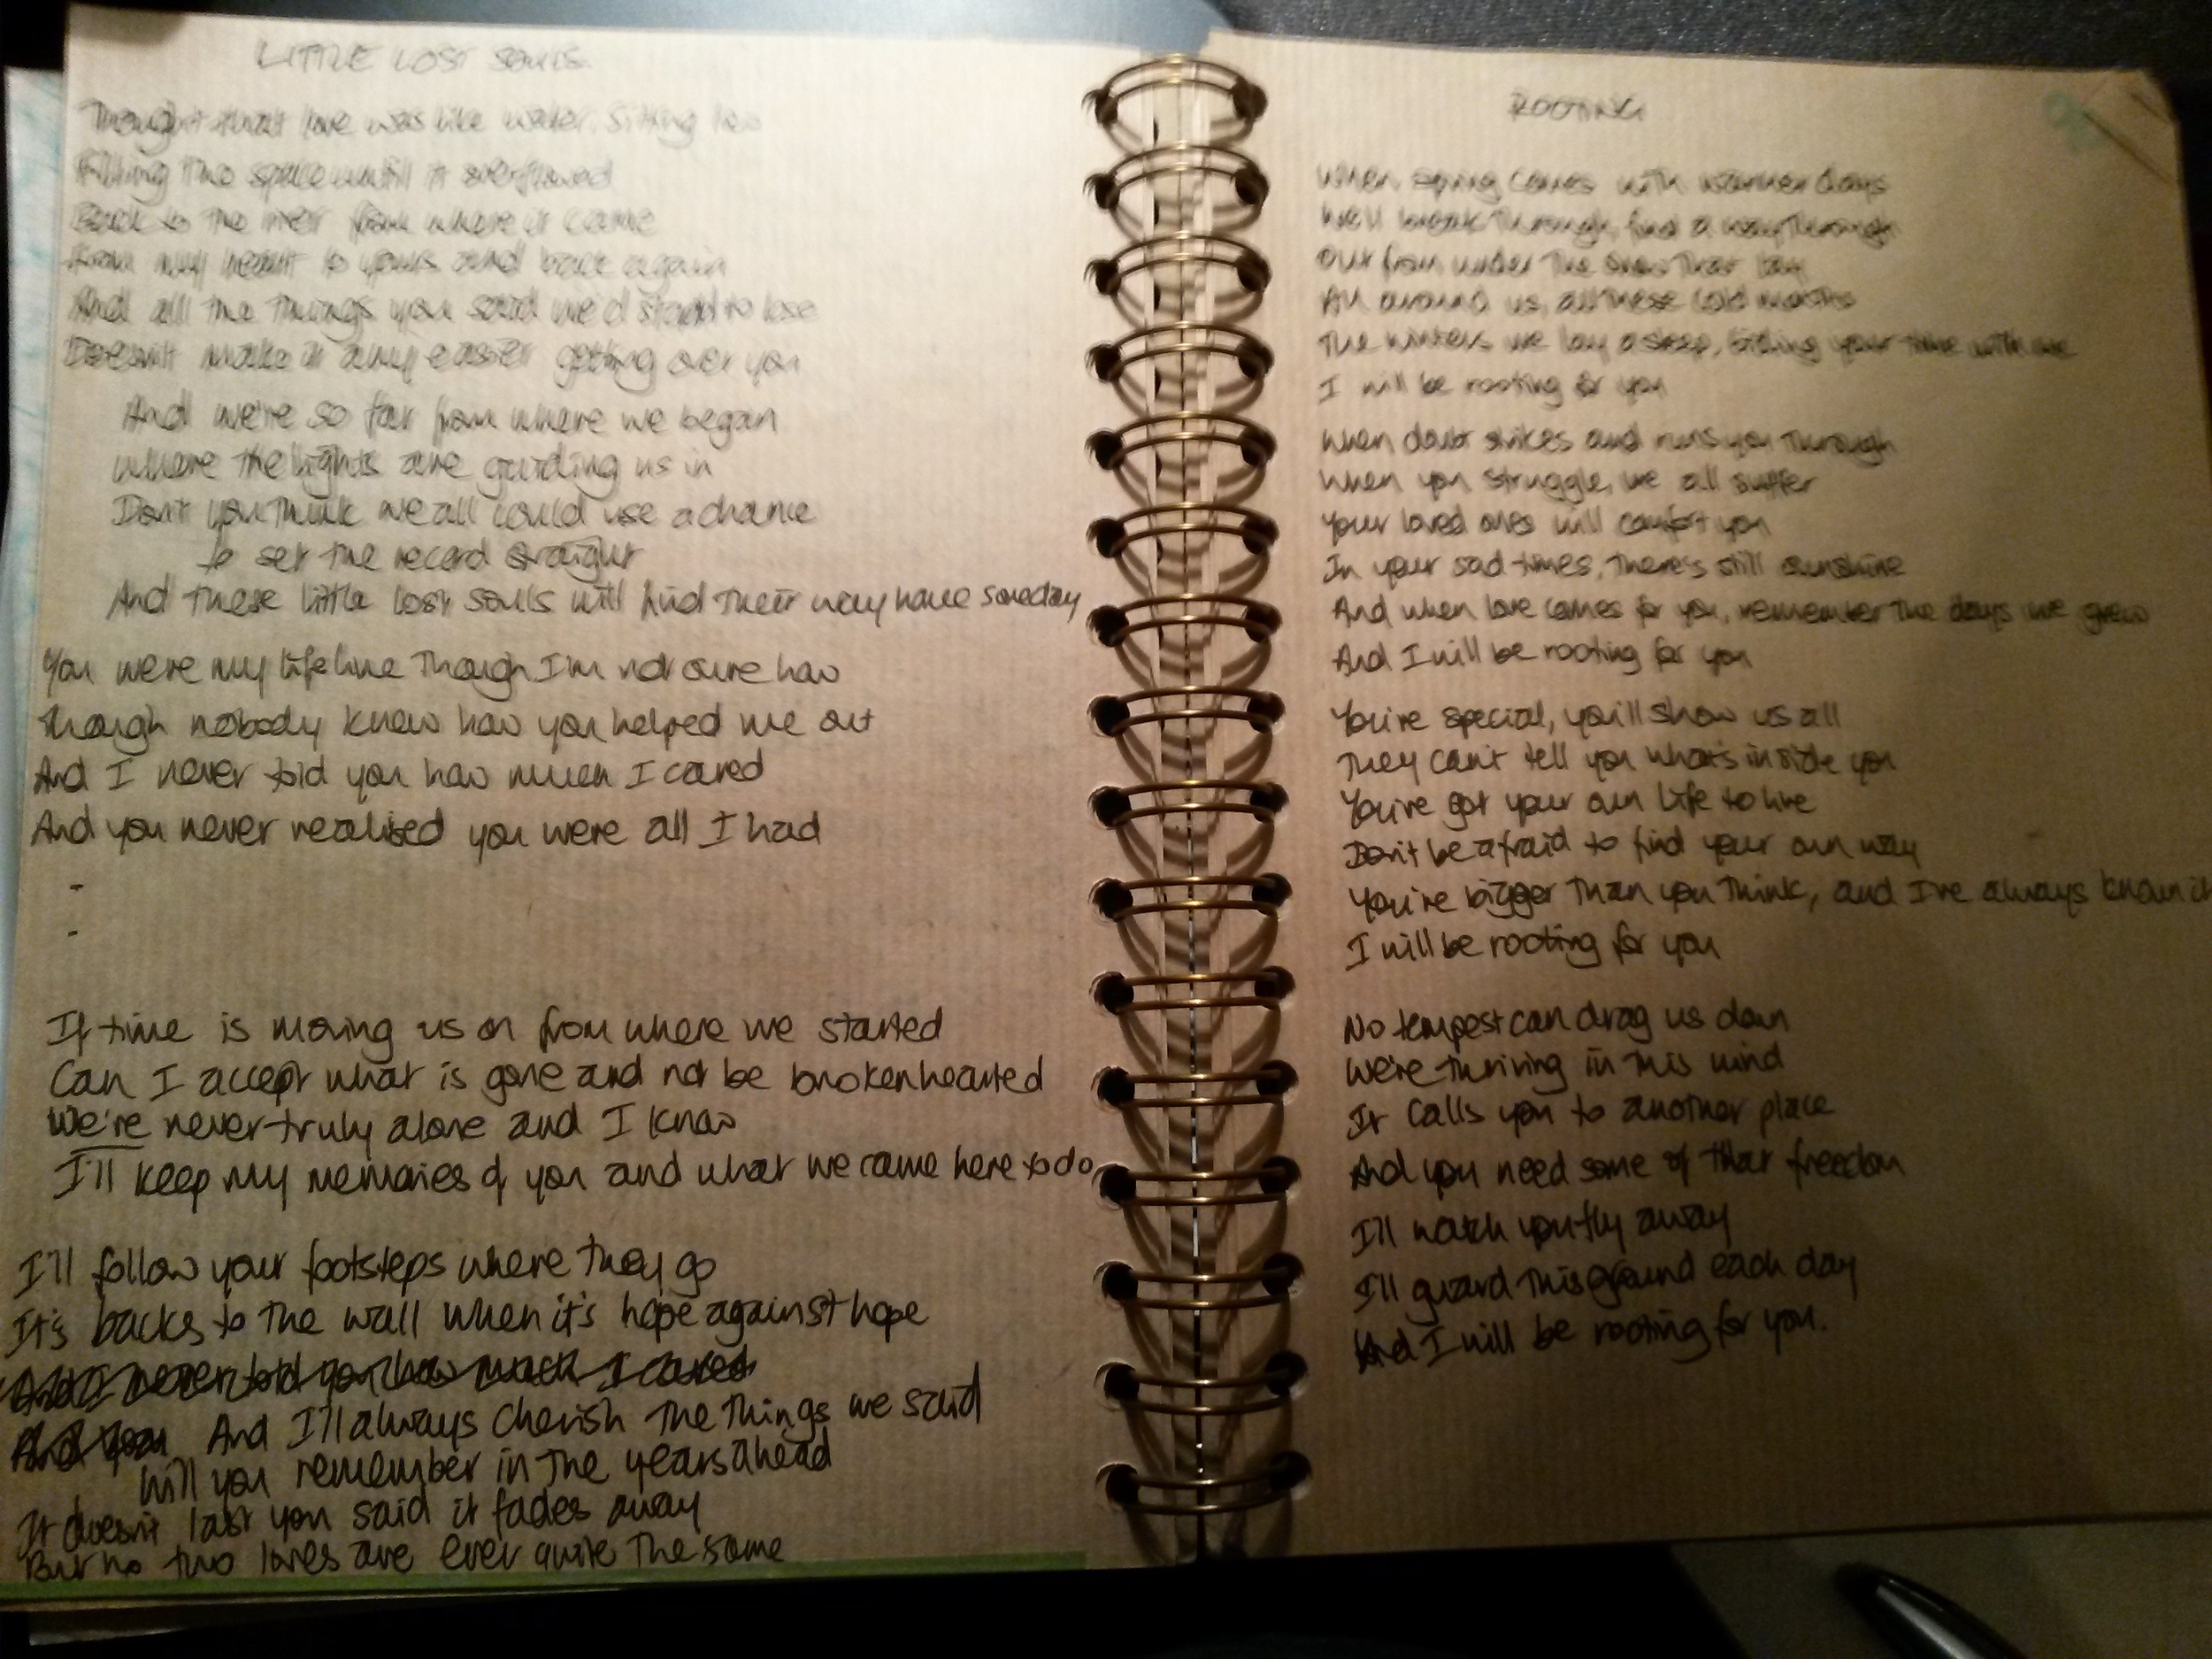 LITTLE LOST SOULS.
Thought that love was like water, sitting low
Filling the space untill it overflowed
Back to the river from where it came
From my heart to yours and back again
And all the things you said we'd stand to lose
Doesn't make it any easier getting over you
And we're so far from where we began
Where the lights are guiding us in
Don't you think we all could use a chance
to set the record straight
And these little lost souls will find their way home someday
You were my lifeline though I'm not sure how
Though nobody knew how you helped me out
And I never told you how much I cared
And you never realised you were all I had
-
-
If time is moving us on from where we started
Can I accept what is gone and not be brokenhearted
We're never truly alone and I know
I'll keep my memories of you and what we came here to do
I'll follow your footsteps where they go
It's backs to the wall when it's hope against hope
And I never told you how much I cared
And you And I'll always cherish the things we said
Will you remember in the years ahead
It doesn't last you said it fades away
But no two loves are ever quite the same
ROOTING
When spring comes with warmer days
We'll break through, find a way through
Out from under the snow that lay
All around us, all these cold months
The winters we lay asleep, biding your time with me
I will be rooting for you
When doubt strikes and runs you through
When you struggle, we all suffer
Your loved ones will comfort you
In your sad times, there's still sunshine
And when love comes for you, remember the days we grew
And I will be rooting for you
You're special, you'll show us all
They can't tell you what's inside you
You've got your own life to live
Don't be afraid to find your own way
You're bigger than you think, and I've always known it
I will be rooting for you
No tempest can drag us down
We're thriving in this wind
It calls you to another place
And you need some of that freedom
I'll watch you fly away
I'll guard this ground each day
And I will be rooting for you.